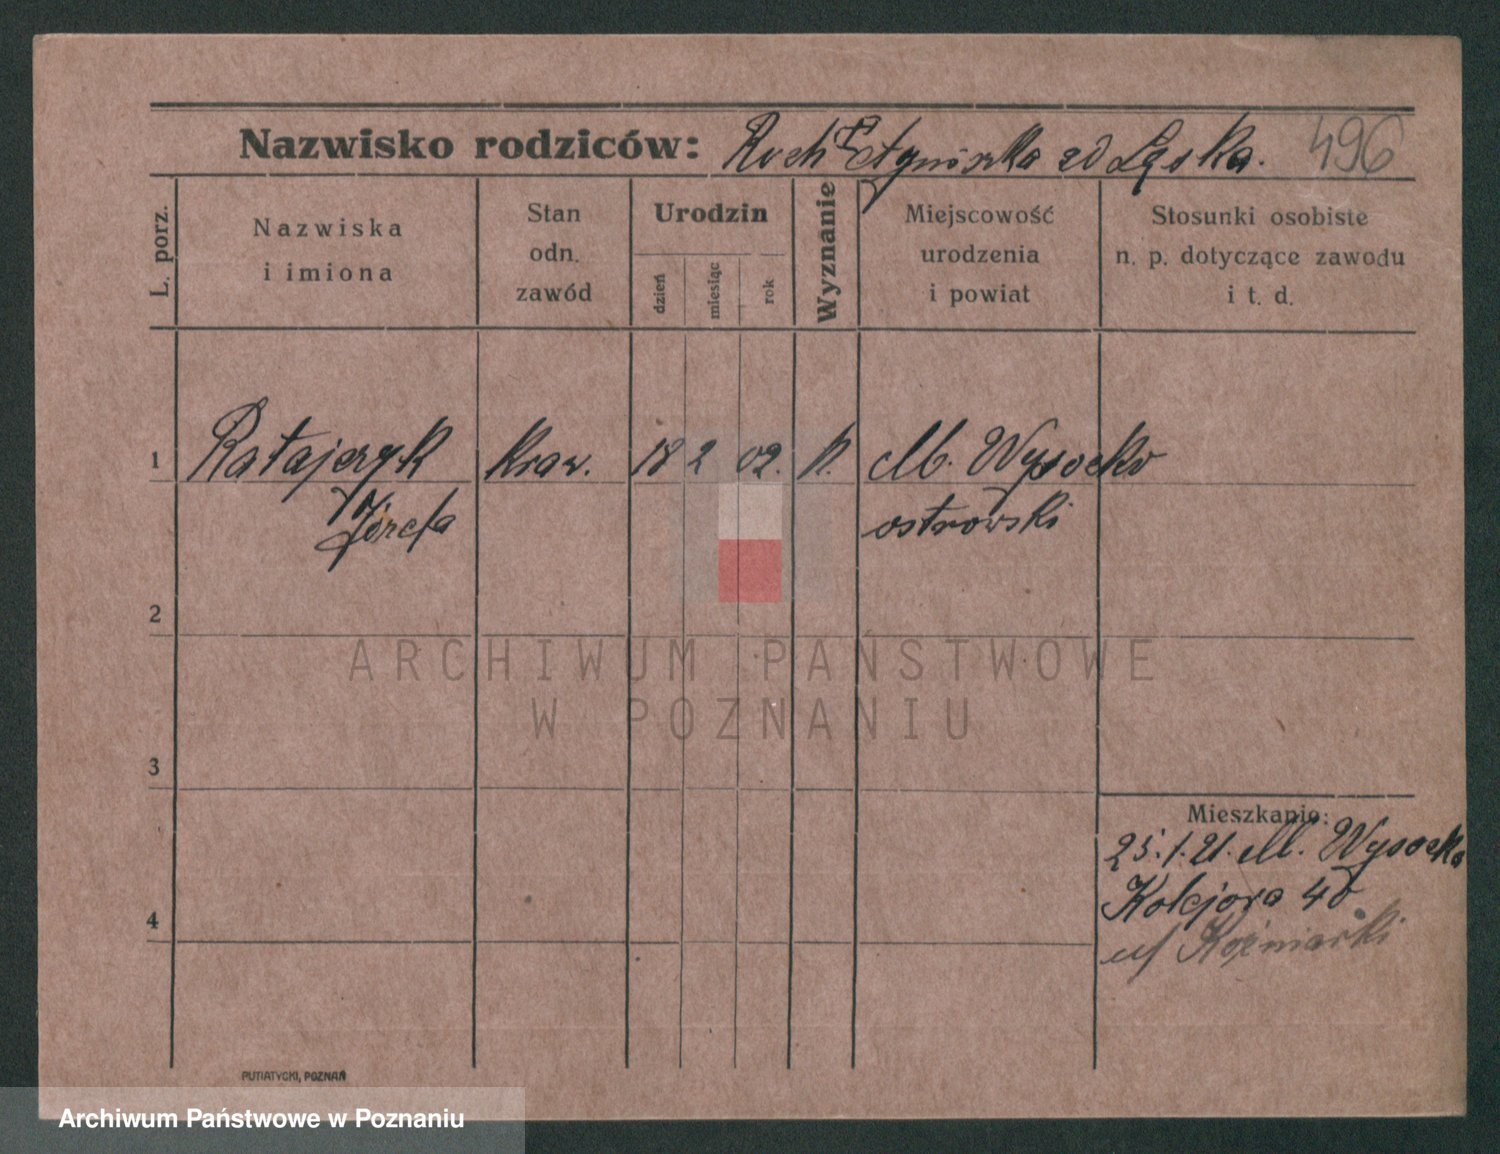 Nazwisko rodziców: Roch Agnieszka zd Ląska. 496
L. porz.
Nazwiska
i imiona
Stan
odn.
zawód
Urodzin
dzień
miesiąc
rok
Wyznanie
Miejscowość
urodzenia
i powiat
Stosunki osobiste
n. p. dotyczące zawodu
i t. d.
1 Ratajczyk kraw. 18 2 02. k. M. Wysocko
Józefa ostrowski
2
3
4
Mieszkanie:
25.1.21. M. Wysocko
Kolejowa 40
u/ Koźniarski
PUTIATYCKI, POZNAŃ
ARCHIWUM PAŃSTWOWE
W POZNANIU
Archiwum Państwowe w Poznaniu